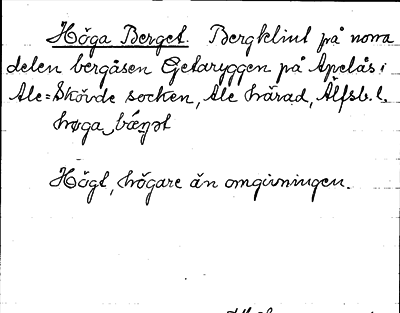 Höga Berget. Bergklint på norra
delen bergåsen Getaryggen på Apelås i
Ale=Skövde socken, Ale härad, Älfsb. l.
høga bǽrjət
Högt, högare än omgivningen.